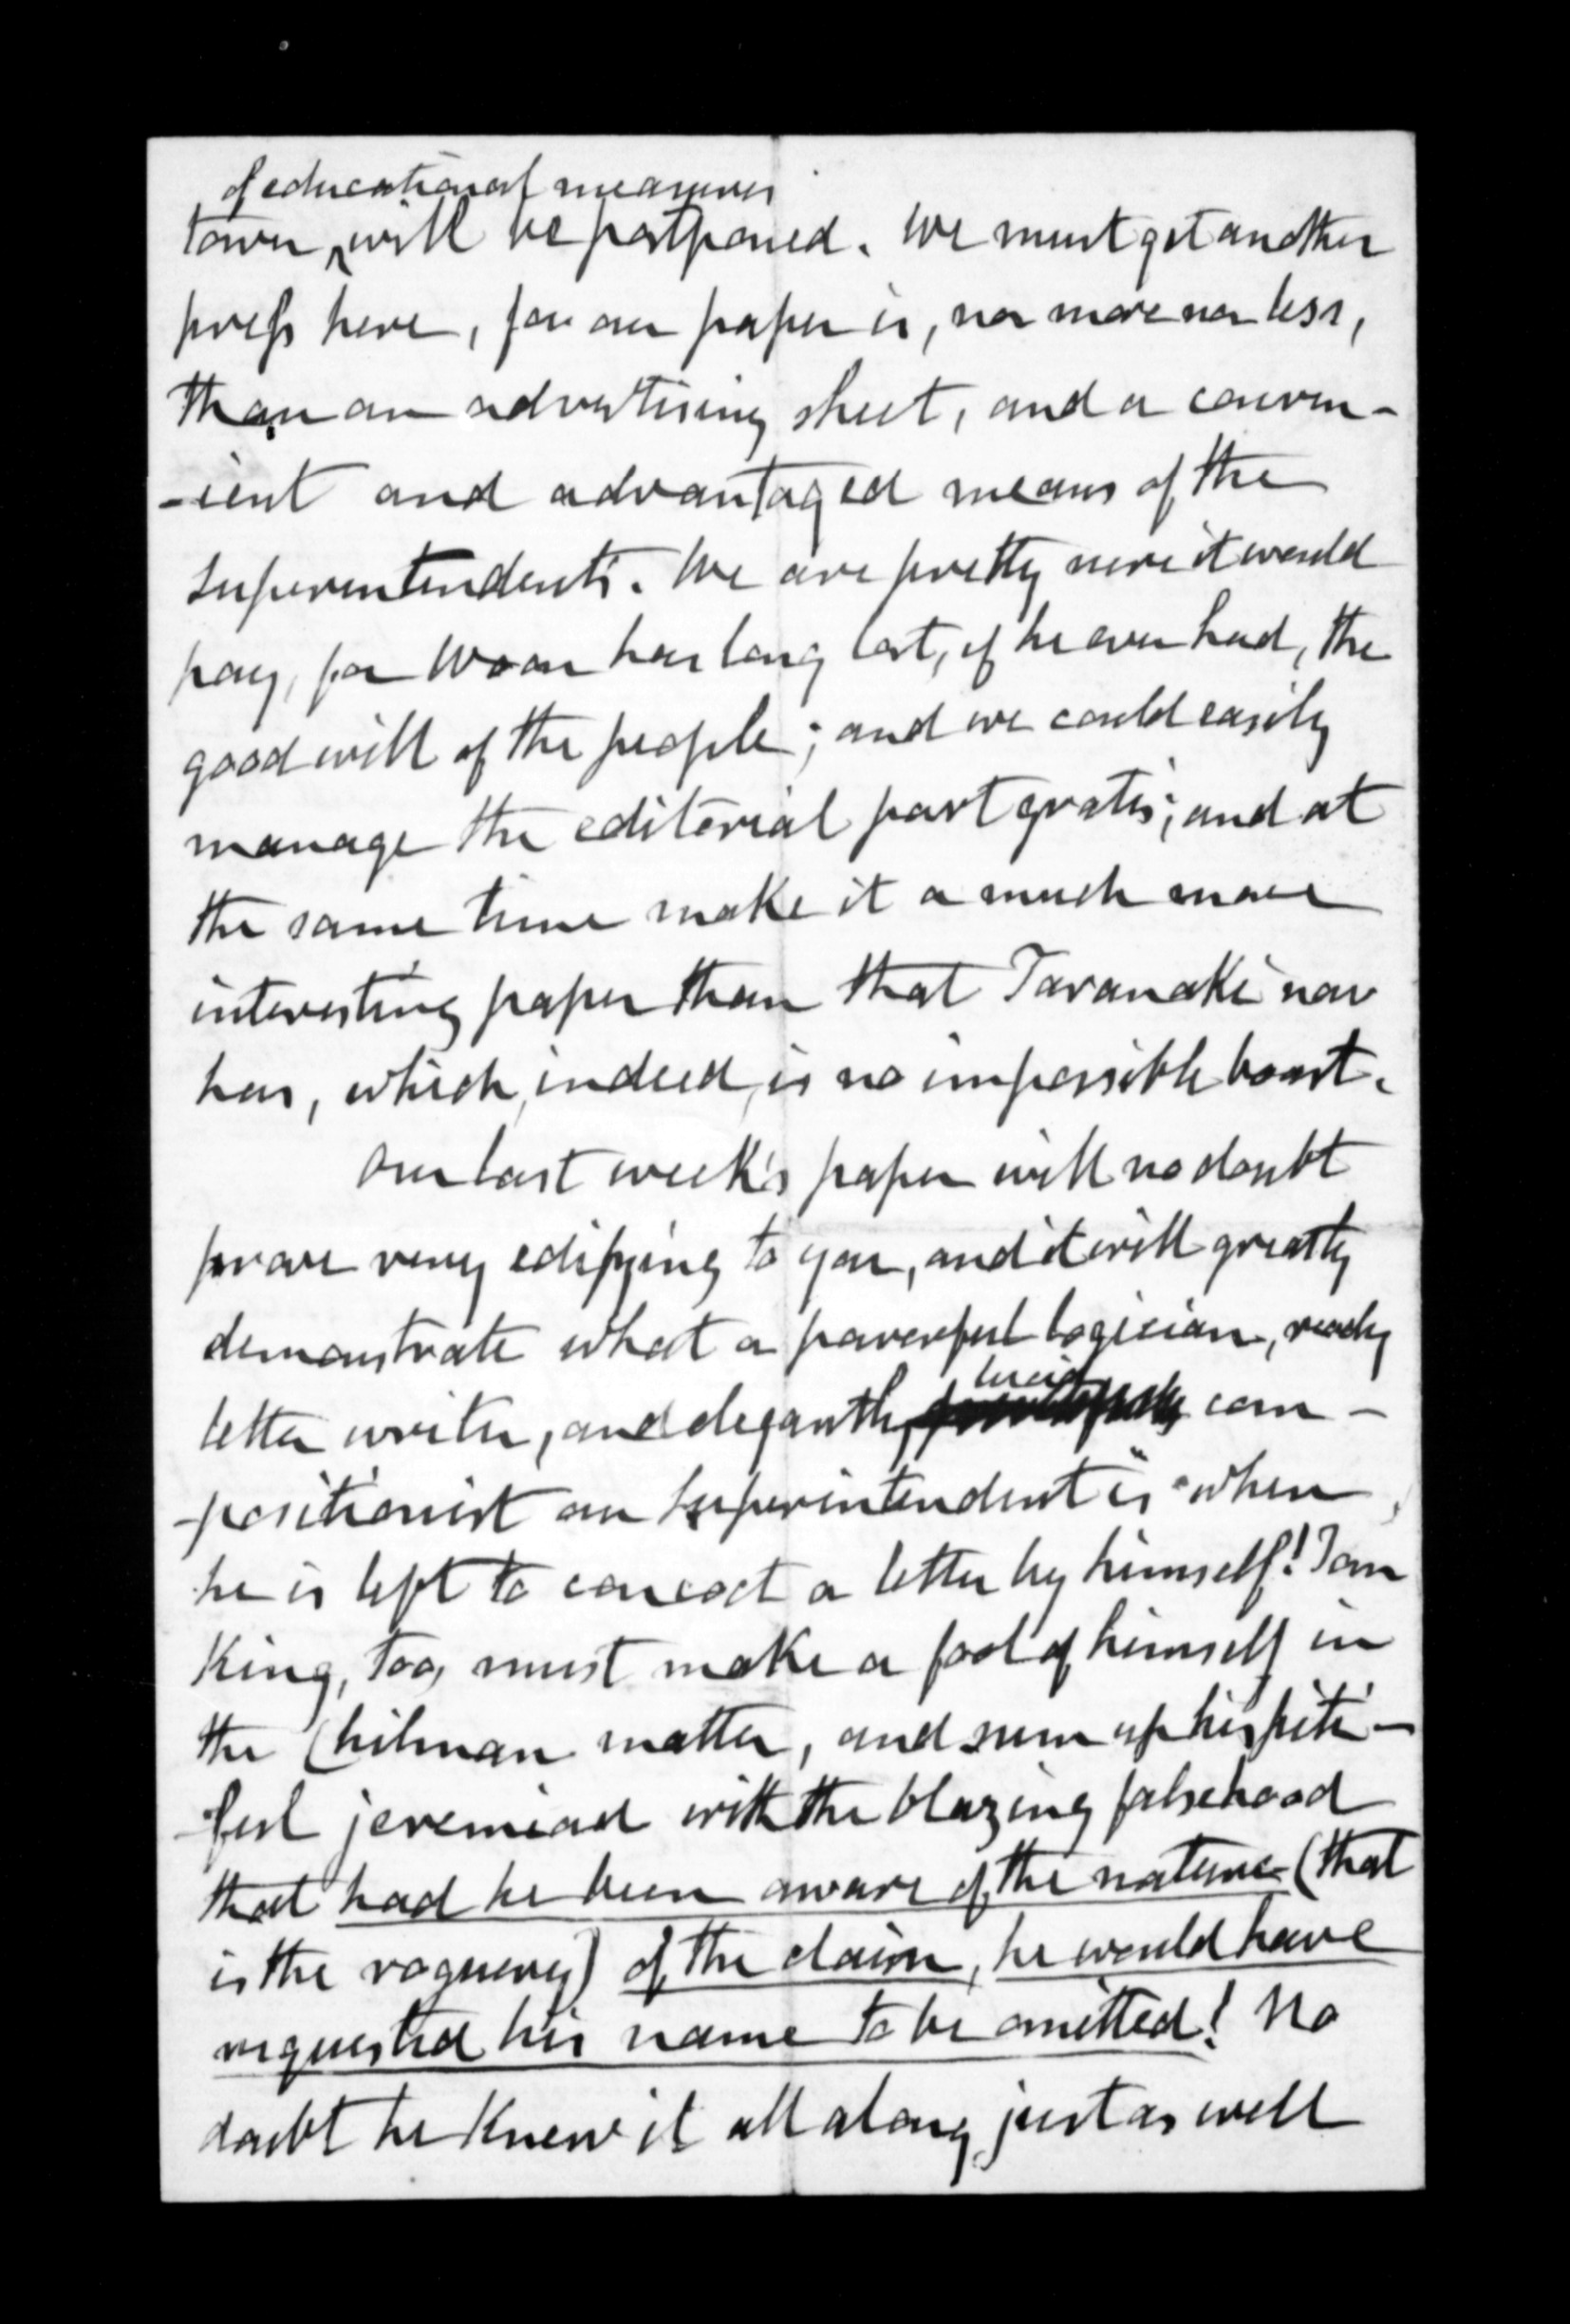 of educational measures
town, will be postponed. We must get another
press here, for our paper is, nor more nor less,
than an advertising sheet, and a conven-
-ient and advantaged means of the
Superintendent's. We are pretty sure it would
pay, for Woon has long lost, if he ever had, the
good will of the people; and we could easily
manage the editorial part gratis; and at
the same time make it a much more
interesting paper than that Taranaki now
has, which, indeed, is no impossible boast.
Our last week's paper will no doubt
prove very edifying to you, and it will greatly
demonstrate what a powerful logician, ready
lucid
letter writer, and elegantly com-
-positionist our Superintendent is "when
he is left to concoct a letter by himself! Tom
King, too, must make a fool of himself in
the Chilman matter, and sum up his piti-
-ful jeremiad with the blazing falsehood
that had he been aware of the nature (that
is the roguery) of the claim, he would have
requested his name to be omitted! No
doubt he knew it all along just as well